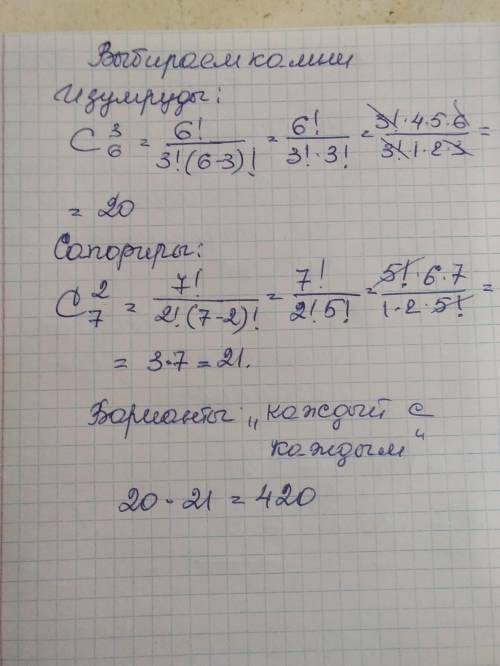 Выбираем камни
Изумруды:
C₆³ = 6!/3!(6-3)! = 6!/3!·3! = 3!·4·5·6/3!·1·2·3 =
= 20
Сапфиры:
C₇² = 7!/2!(7-2)! = 7!/2!5! = 5!·6·7/1·2·5! =
= 3·7 = 21.
Варианты „каждый с
каждым“
20·21 = 420